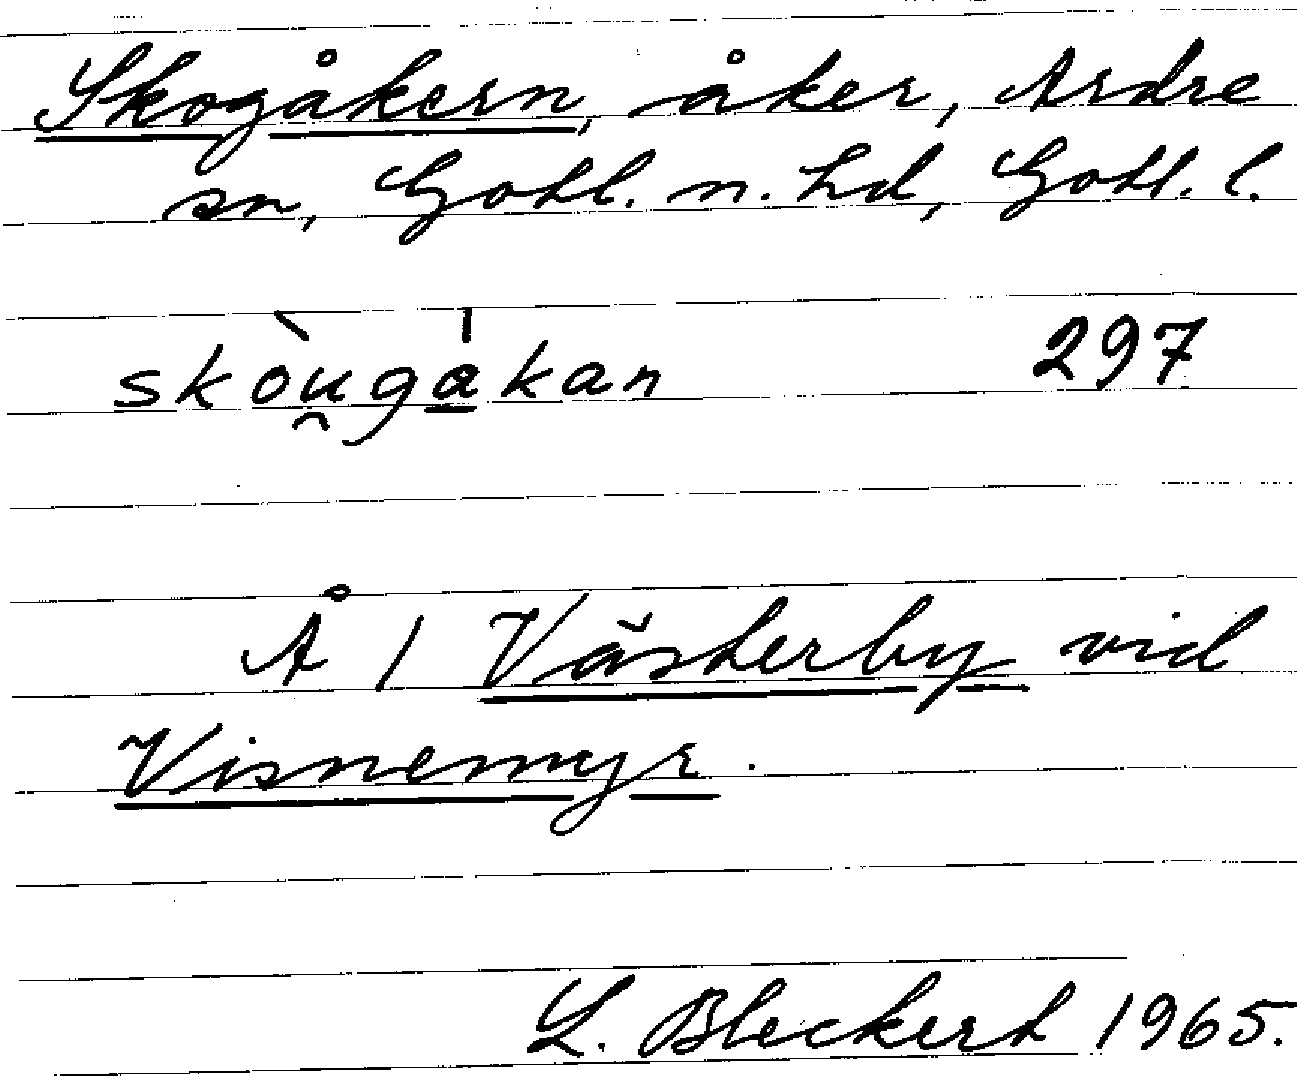 Skogåkern, åker, Ardre
sn, Gotl. n. hd, Gotl. l.
skòu̯gá̱kan 297
Å / Västerby vid
Visnemyr.
L. Bleckert 1965.